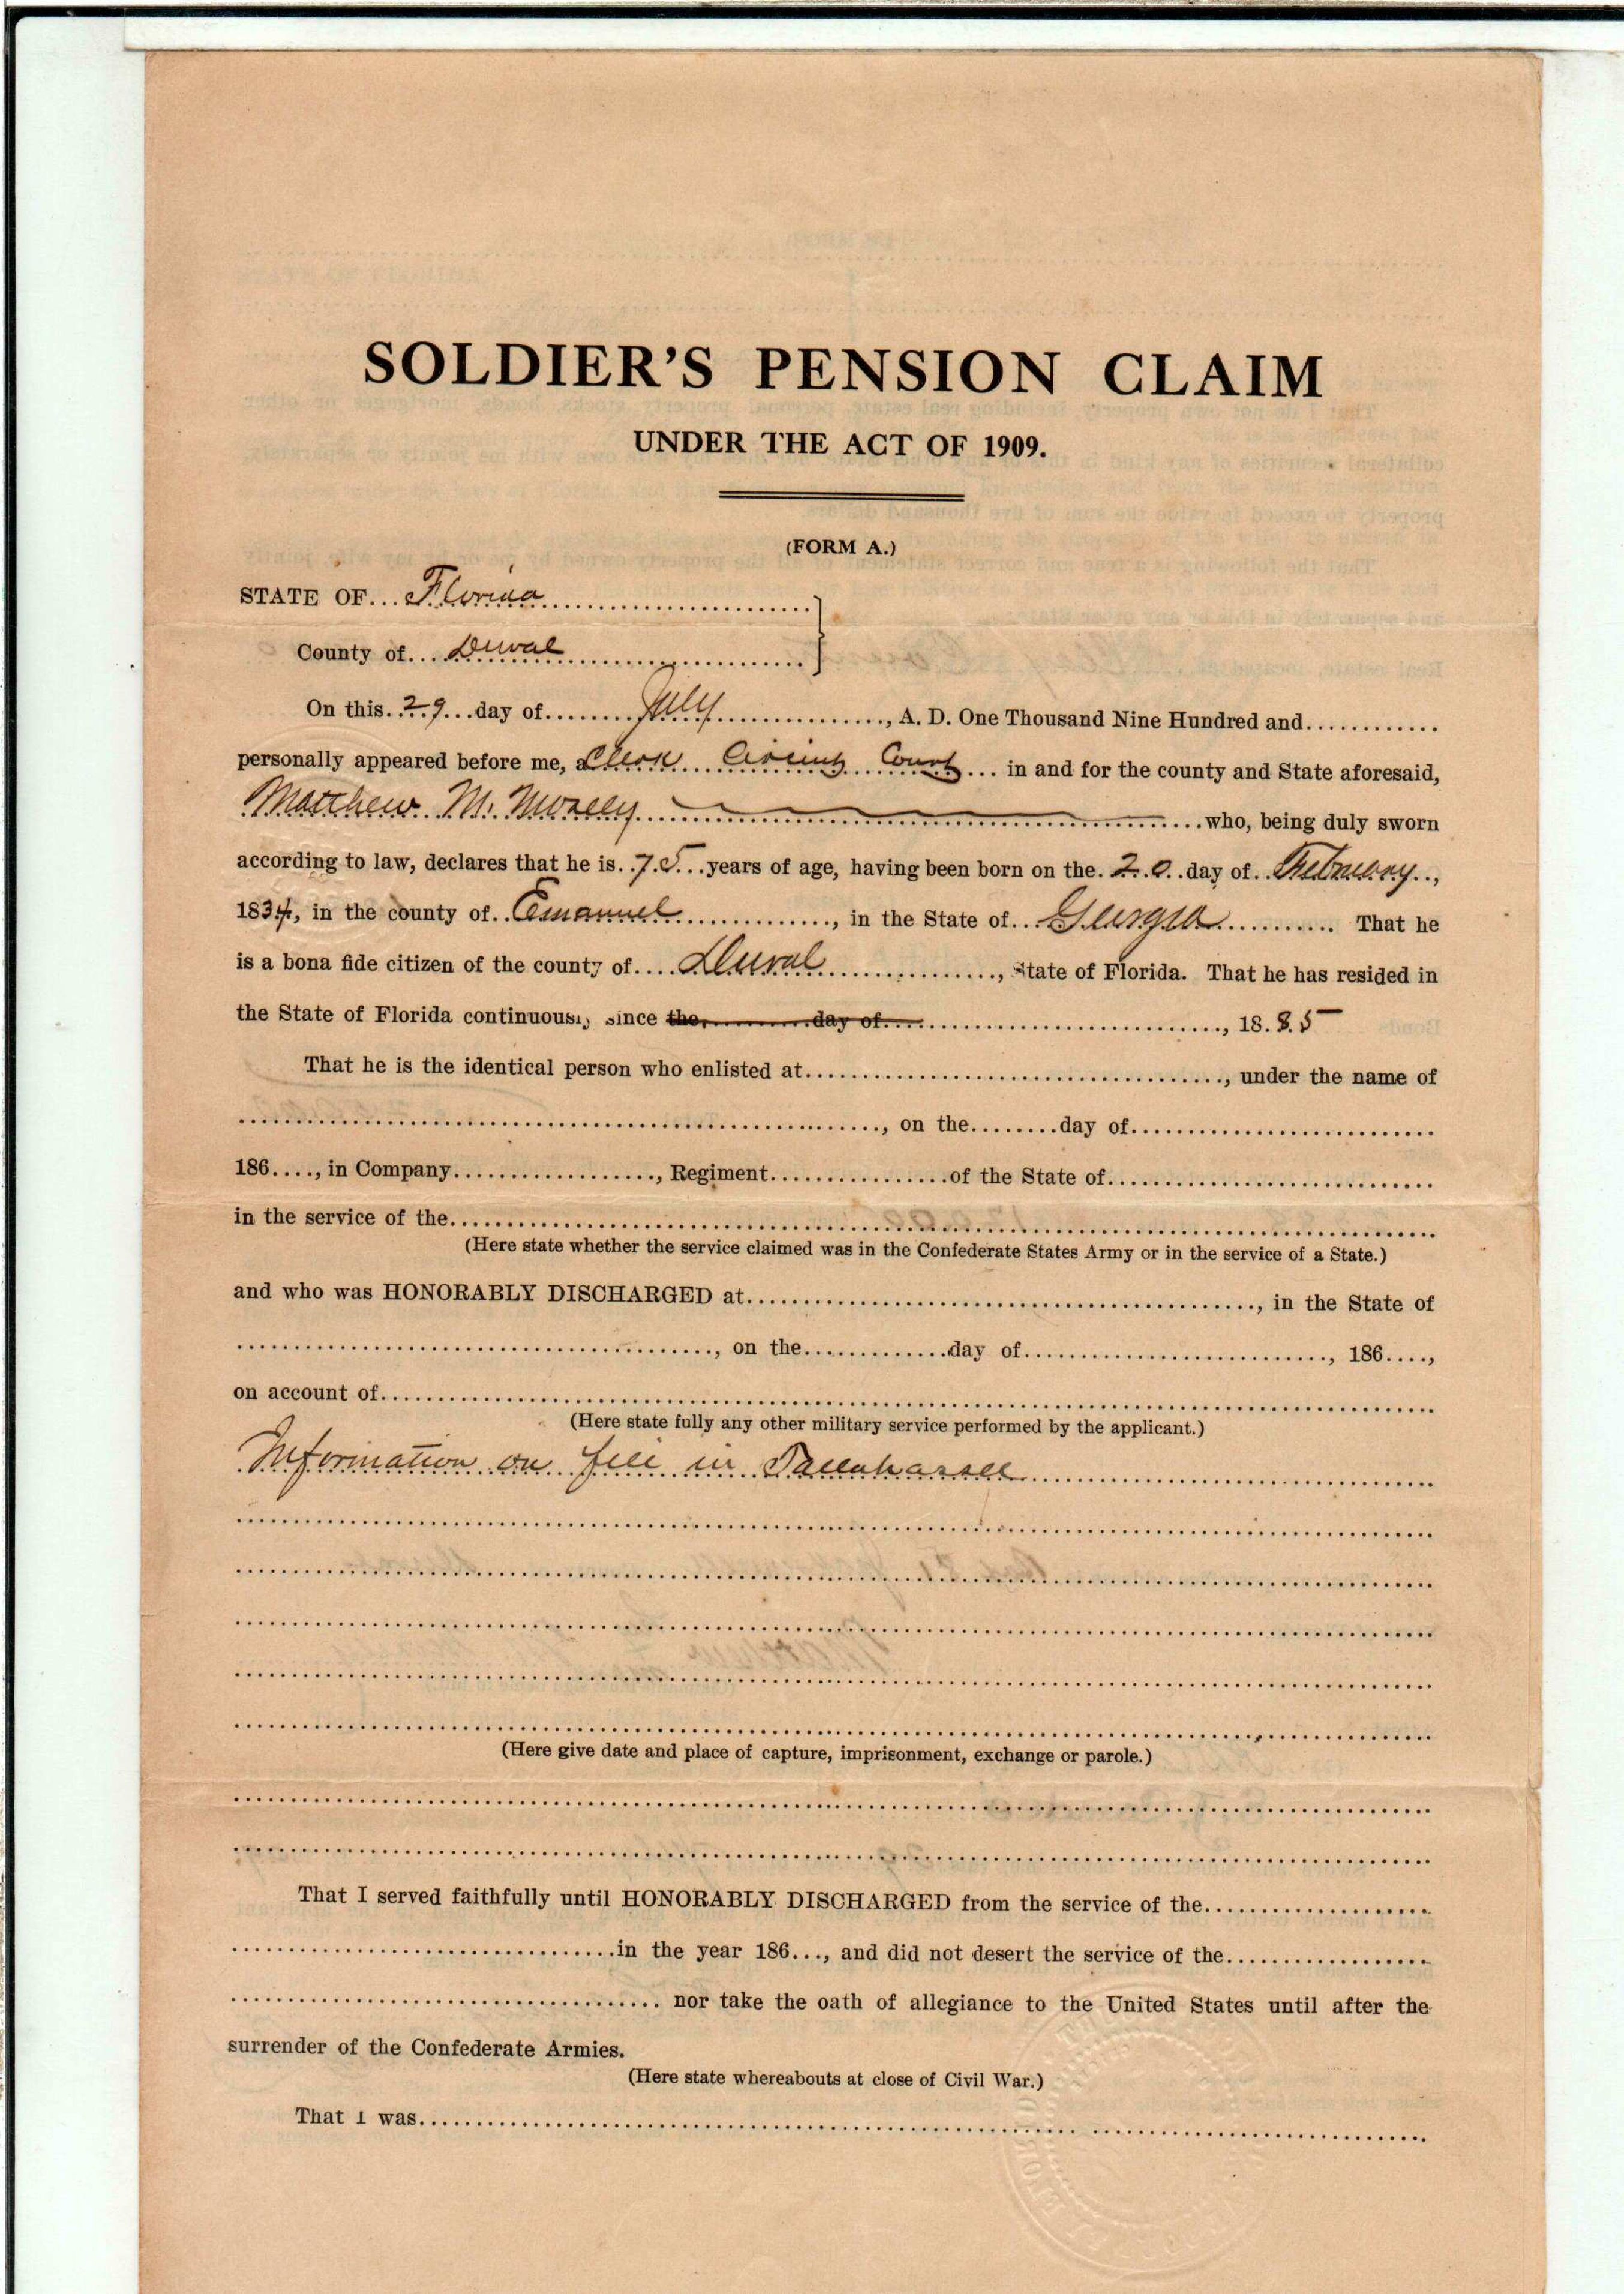 SOLDIER'S PENSION CLAIM
UNDER THE ACT OF 1909.
(FORM A.)
STATE OF... Florida
County of.... Duval
On this..29...day of........July................, A. D. One Thousand Nine Hundred and............
personally appeared before me, a Clerk Circuit Court ... in and for the county and State aforesaid,
Matthew M. Mozely ... who, being duly sworn
according to law, declares that he is..75...years of age, having been born on the. 20..day of..February..,
1834, in the county of..Emanuel..............., in the State of...Georgia........... That he
is a bona fide citizen of the county of....Duval................, State of Florida. That he has resided in
the State of Florida continuously since the..........day of...................................., 18.85
That he is the identical person who enlisted at......................................, under the name of
..........................................................., on the........day of............................
186...., in Company..................., Regiment.................of the State of..............................
in the service of the..........................................................................................
(Here state whether the service claimed was in the Confederate States Army or in the service of a State.)
and who was HONORABLY DISCHARGED at..............................................., in the State of
............................................, on the..............day of............................, 186....,
on account of...............................................................................................
(Here state fully any other military service performed by the applicant.)
Information on file in Tallahassee
(Here give date and place of capture, imprisonment, exchange or parole.)
That I served faithfully until HONORABLY DISCHARGED from the service of the....................
...................................in the year 186..., and did not desert the service of the..................
....................................... nor take the oath of allegiance to the United States until after the
surrender of the Confederate Armies.
(Here state whereabouts at close of Civil War.)
That I was..........................................................................................